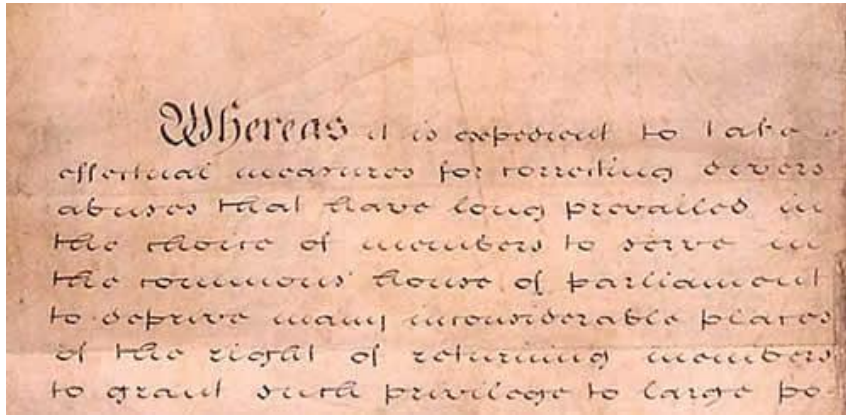 Whereas it is expedient to take
effectual measures for correcting divers
abuses that have long prevailed in
the choice of members to serve in
the commons' house of parliament
to deprive many inconsiderable places
of the right of returning members
to grant such privilege to large po-